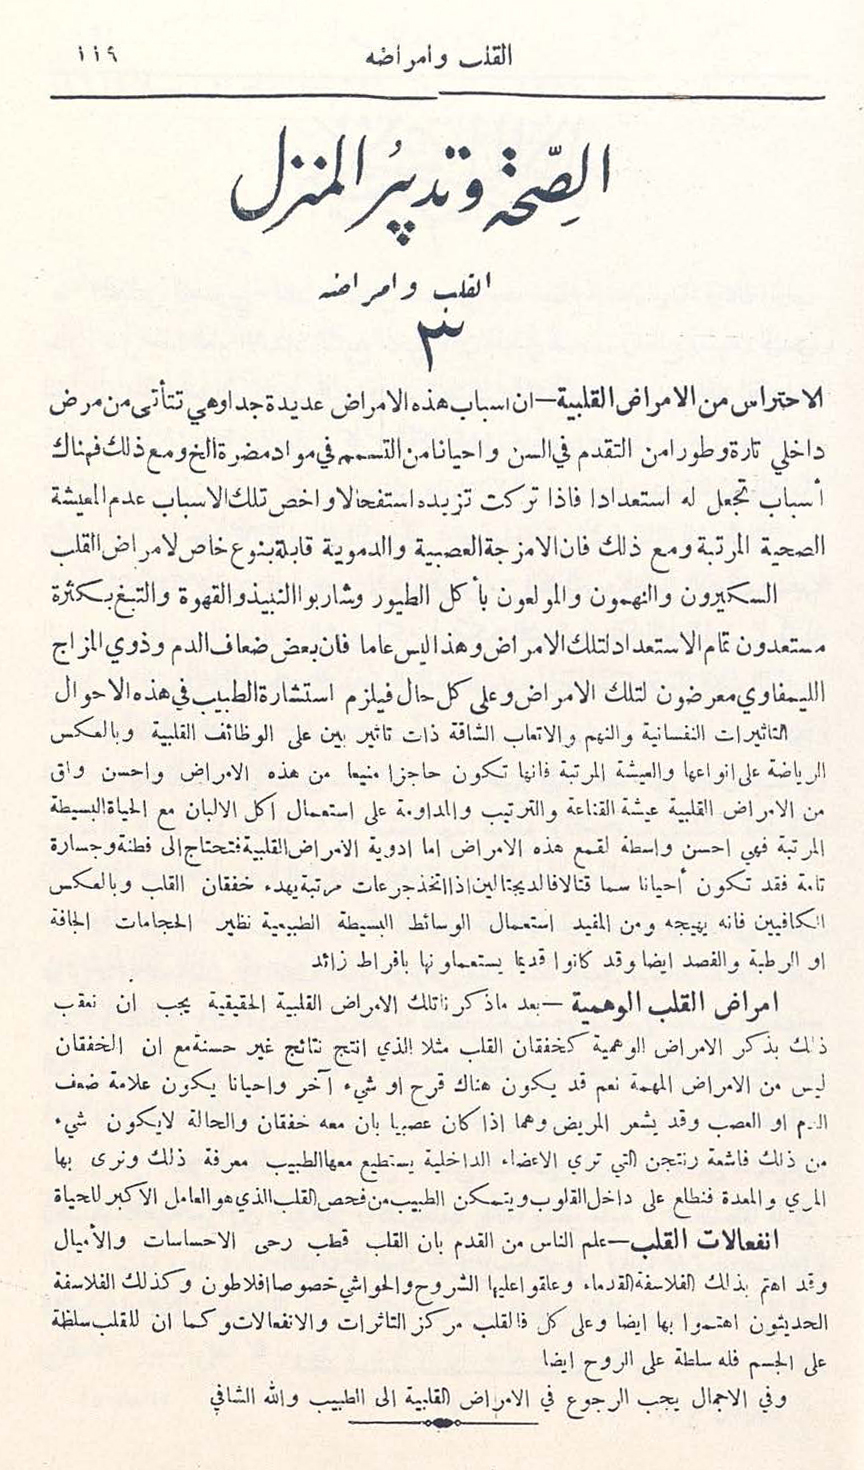 القلب وامراضه ١١٩
الصِّحة وتدبيرُ المنزل
القلب وامراضه
٣
الاحتراس من الامراض القلبية — ان اسباب هذه الامراض عديدة جدا وهي تتأتى من مرض
داخلي تارة وطورا من التقدم في السن واحيانا من التسمم في مواد مضرة الخ ومع ذلك فهناك
أسباب تجعل له استعدادا فاذا تركت تزيده استفحالا واخص تلك الاسباب عدم المعيشة
الصحية المرتبة ومع ذلك فان الامزجة العصبية والدموية قابلة بنوع خاص لامراض القلب
السكيرون والنهمون والمولعون بأكل الطيور وشاربوا النبيذ والقهوة والتبغ بكثرة
مستعدون تمام الاستعداد لتلك الامراض وهذا ليس عاما فان بعض ضعاف الدم وذوي المزاج
الليمفاوي معرضون لتلك الامراض وعلى كل حال فيلزم استشارة الطبيب في هذه الاحوال
التاثيرات النفسانية والنهم والاتعاب الشاقة ذات تاثير بين على الوظائف القلبية وبالعكس
الرياضة على انواعها والعيشة المرتبة فانها تكون حاجزا منيعا من هذه الامراض واحسن واق
من الامراض القلبية عيشة القناعة والترتيب والمداومة على استعمال اكل الالبان مع الحياة البسيطة
المرتبة فهي احسن واسطة لقمع هذه الامراض اما ادوية الامراض القلبية فتحتاج الى فطنة وجسارة
تامة فقد تكون أحيانا سما قتالا فالديجتالين اذا اتخذ جرعات مرتبة يهدء خفقان القلب وبالعكس
الكافيين فانه يهيجه ومن المفيد استعمال الوسائط البسيطة الطبيعية نظير الحجامات الجافة
او الرطبة والفصد ايضا وقد كانوا قديما يستعملونها بافراط زائد
امراض القلب الوهمية — بعد ما ذكرنا تلك الامراض القلبية الحقيقية يجب ان نعقب
ذلك بذكر الامراض الوهمية كخفقان القلب مثلا الذي انتج نتائج غير حسنة مع ان الخفقان
ليس من الامراض المهمة نعم قد يكون هناك قرح او شيء آخر واحيانا يكون علامة ضعف
الدم او العصب وقد يشعر المريض وهما اذا كان عصبيا بان معه خفقان والحالة لايكون شيء
من ذلك فاشعة رنتجن التي تري الاعضاء الداخلية يستطيع معها الطبيب معرفة ذلك ونرى بها
المري والمعدة فنطلع على داخل القلوب ويتمكن الطبيب من فحص القلب الذي هو العامل الاكبر للحياة
انفعالات القلب — علم الناس من القدم بان القلب قطب رحى الاحساسات والأميال
وقد اهتم بذلك الفلاسفة القدماء وعلقوا عليها الشروح والحواشي خصوصا افلاطون وكذلك الفلاسفة
الحديثون اهتموا بها ايضا وعلى كل فالقلب مركز التاثرات والانفعالات وكما ان للقلب سلظة
على الجسم فله سلطة على الروح ايضا
وفي الاجمال يجب الرجوع في الامراض القلبية الى الطبيب والله الشافي